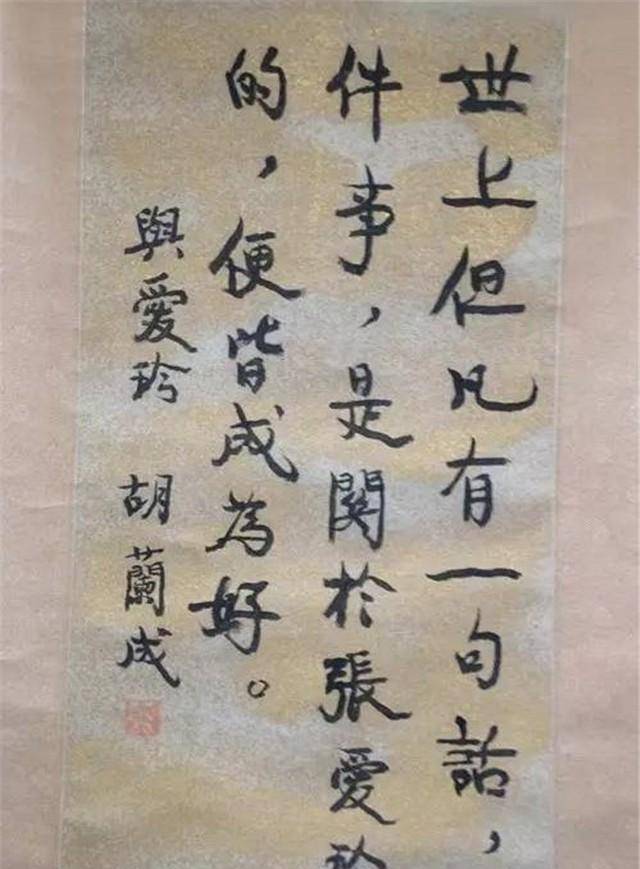 世上但凡有一句話，
件事，是関於張愛玲
的，便皆成為好。
與愛玲 胡蘭成